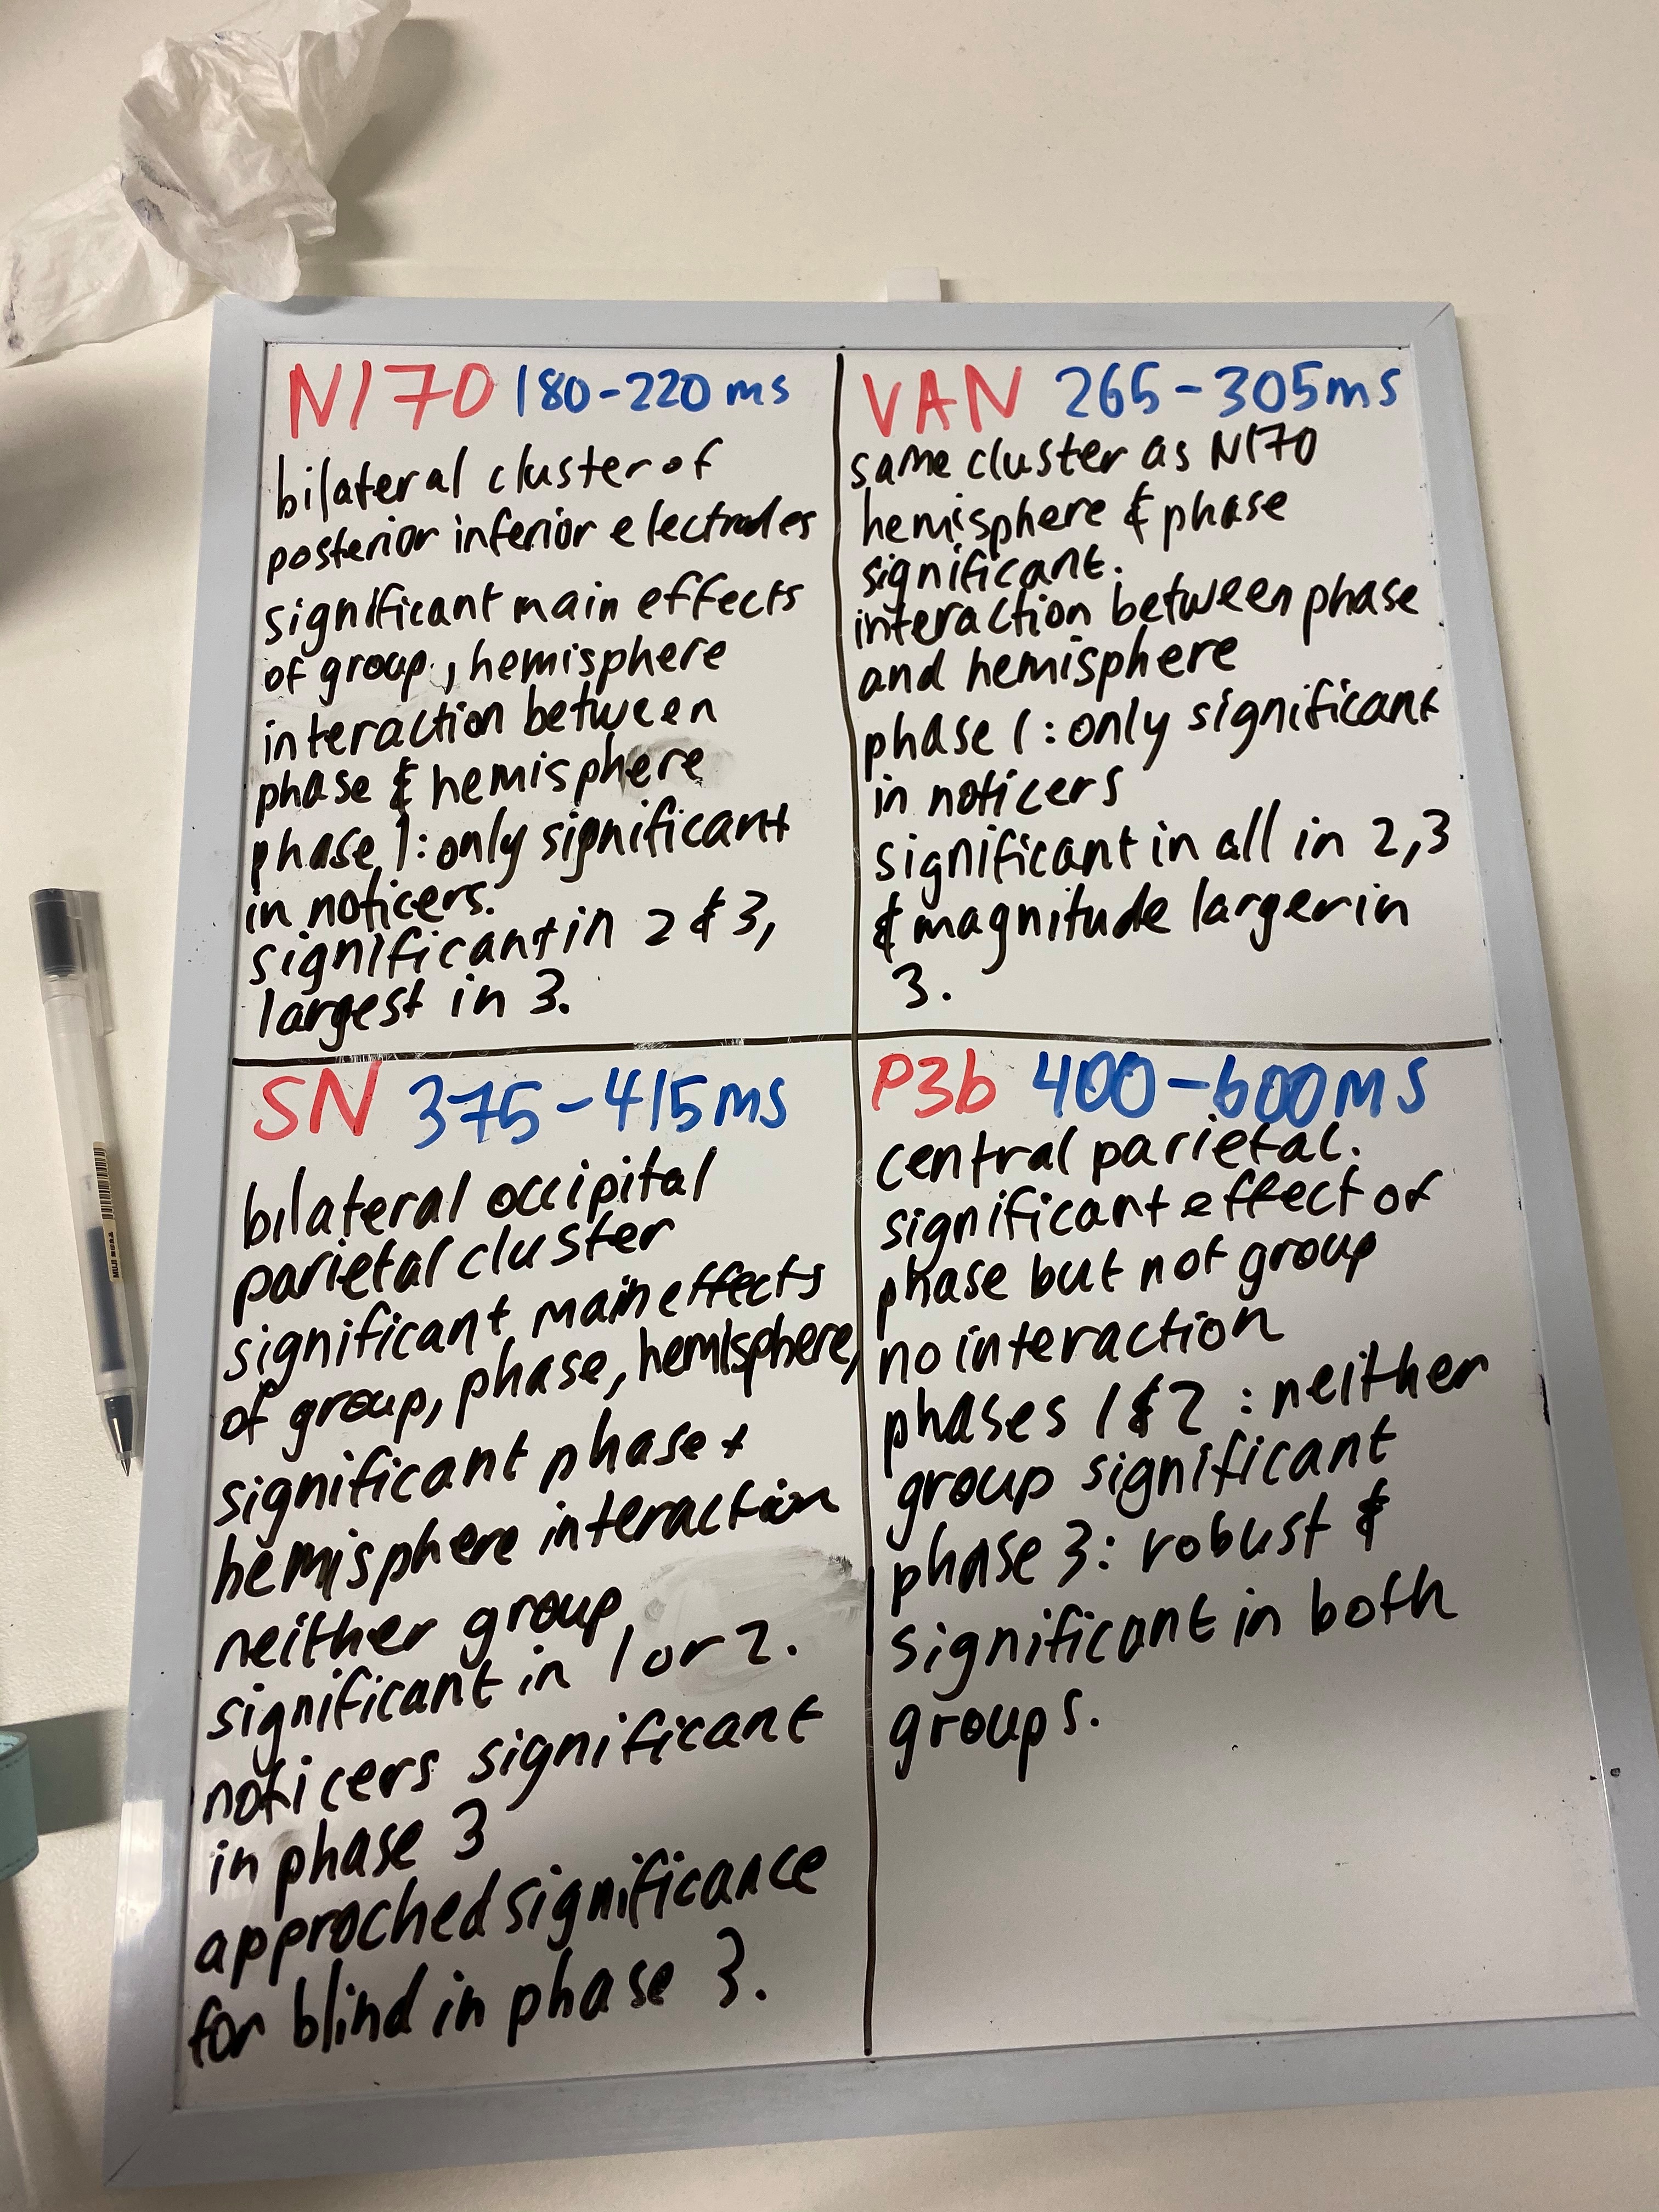 N170 180-220ms
bilateral cluster of
posterior inferior electrodes
significant main effects
of group, hemisphere
interaction between
phase & hemisphere
phase 1: only significant
in noticers.
significant in 2 & 3,
largest in 3.
VAN 265-305ms
same cluster as N170
hemisphere & phase
significant.
interaction between phase
and hemisphere
phase 1: only significant
in noticers
significant in all in 2,3
& magnitude larger in
3.
SN 375-415ms
bilateral occipital
parietal cluster
significant main effects
of group, phase, hemisphere,
significant phase +
hemisphere interaction
neither group
significant in 1 or 2.
noticers significant
in phase 3
approched significance
for blind in phase 3.
P3b 400-600ms
central parietal.
significant effect of
phase but not group
no interaction
phases 1 & 2 : neither
group significant
phase 3: robust &
significant in both
groups.
MUJI